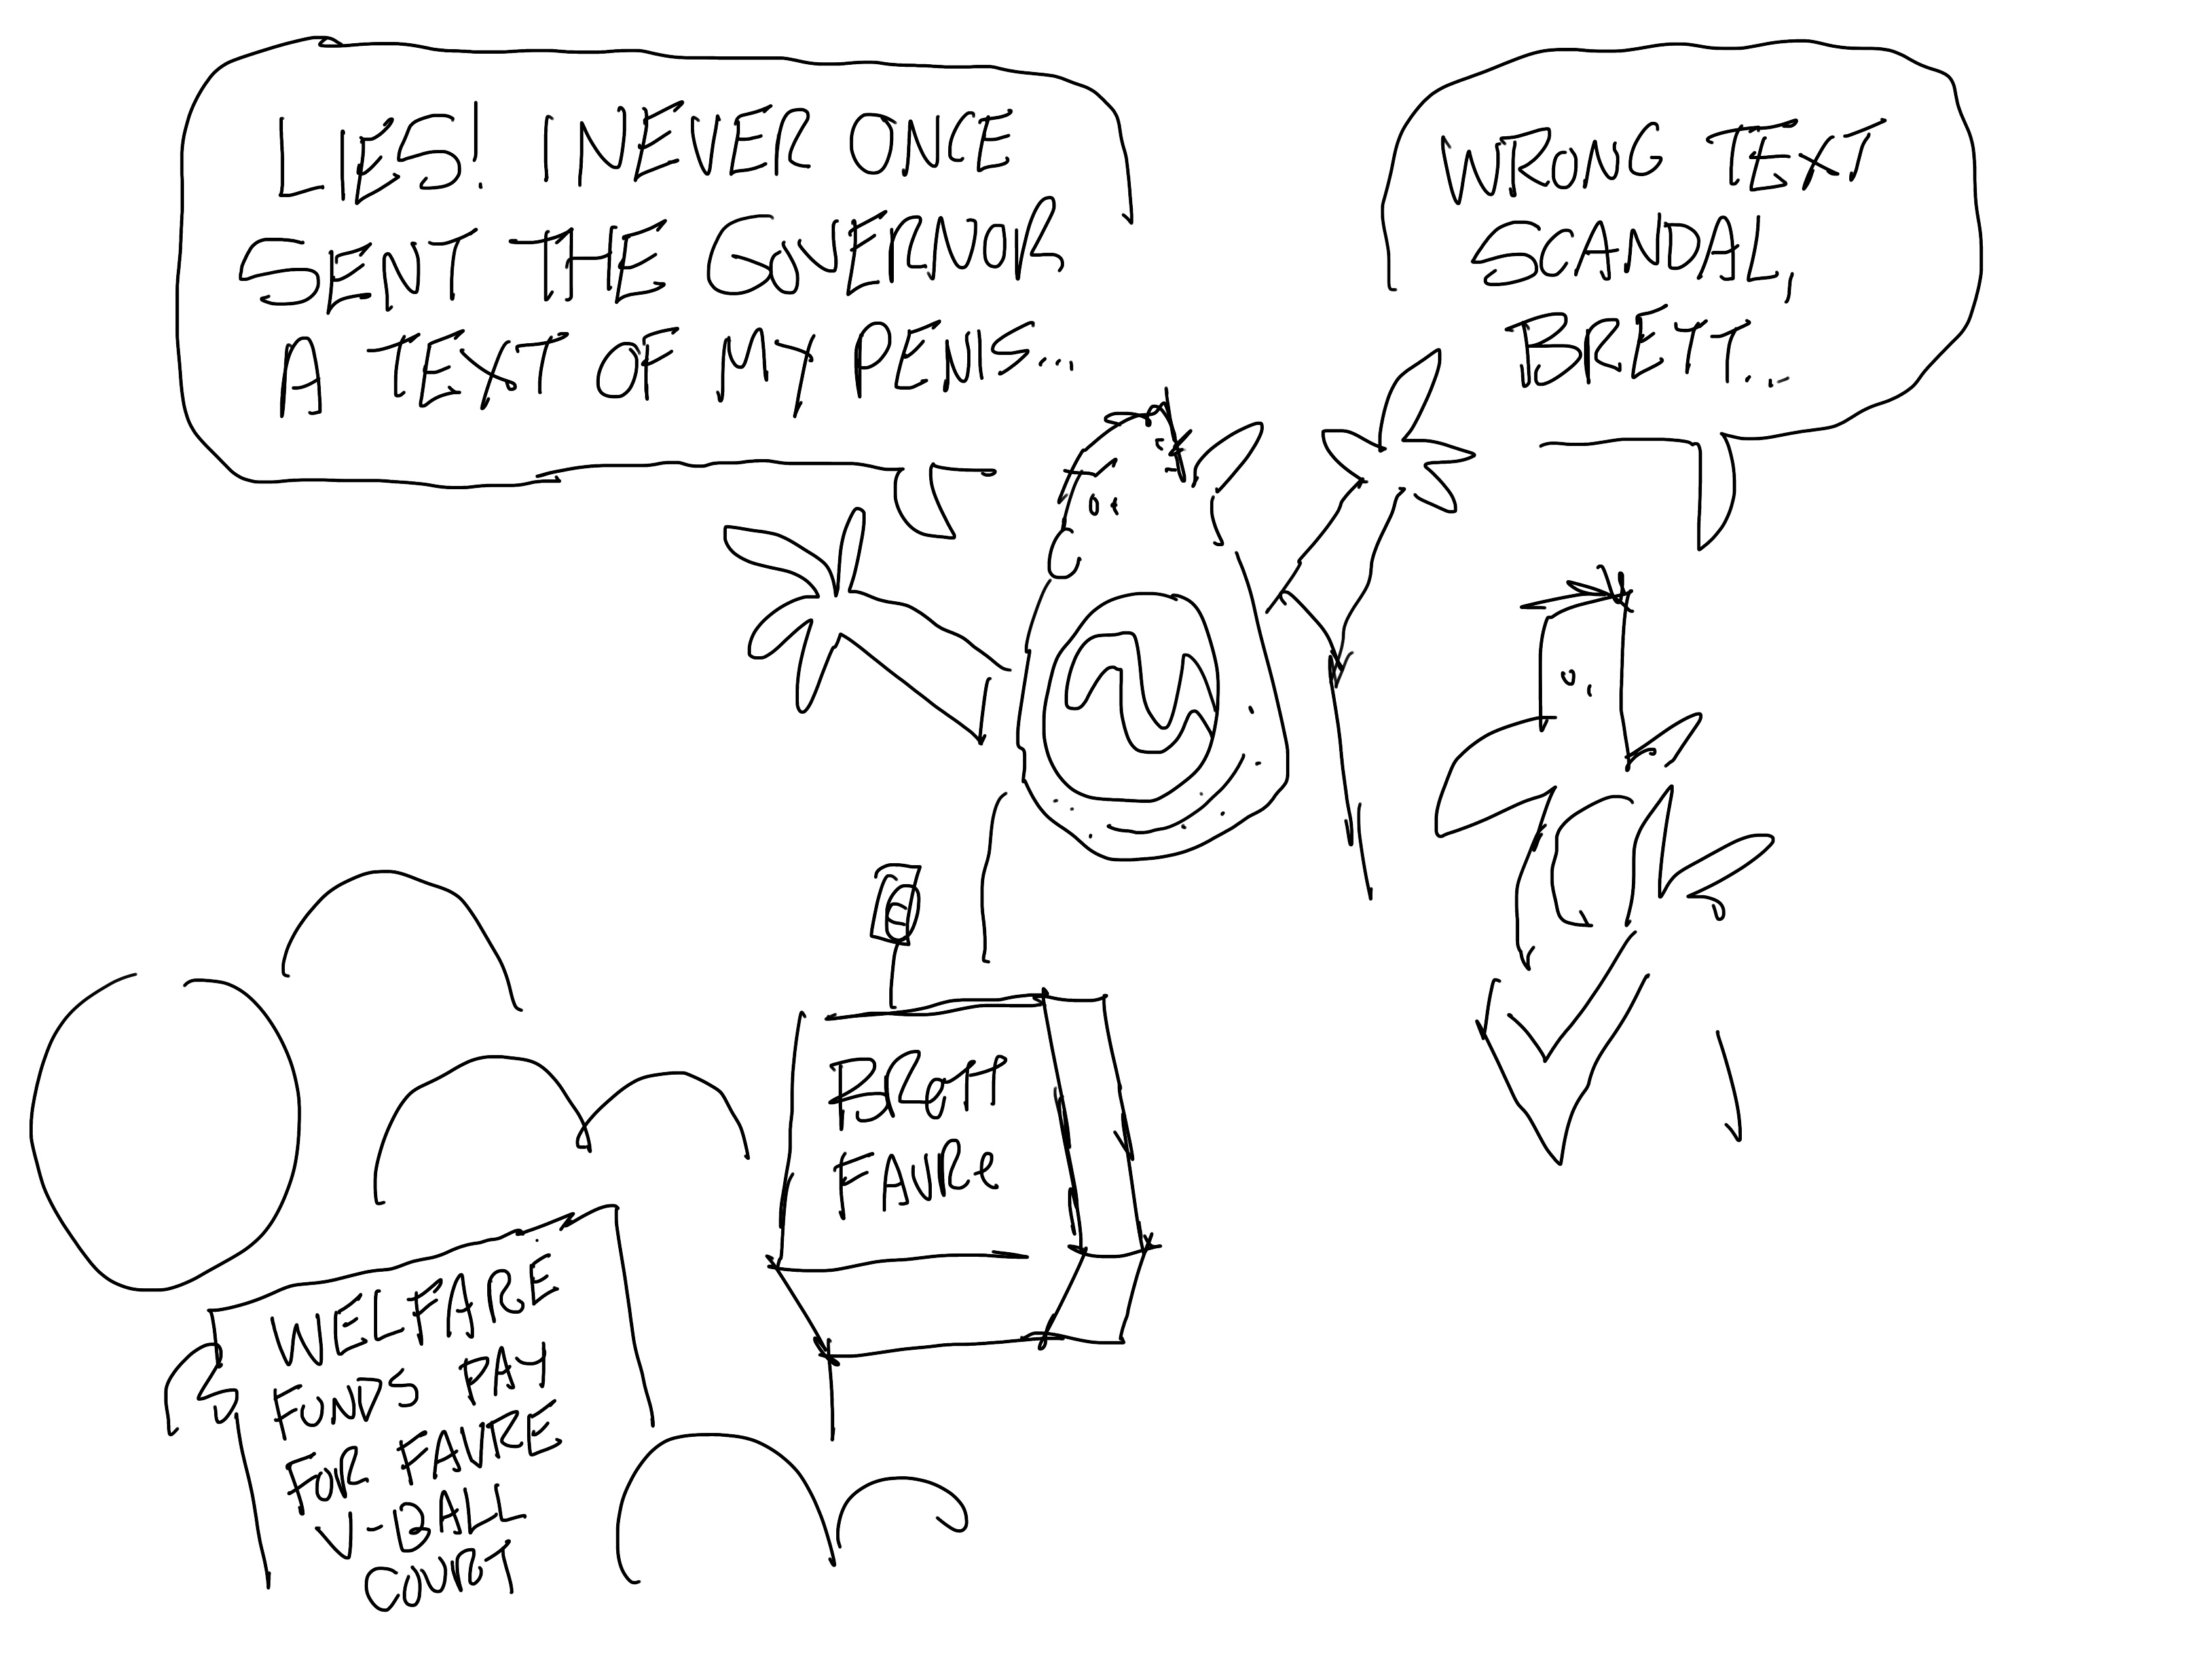 LIES! I NEVER ONCE
SENT THE GOVERNOR
A TEXT OF MY PENIS...
WRONG TEXT
SCANDAL,
BRETT...
BRETT
FAVRE
WELFARE
FUNDS PAY
FOR FAVRE
V-BALL
COURT